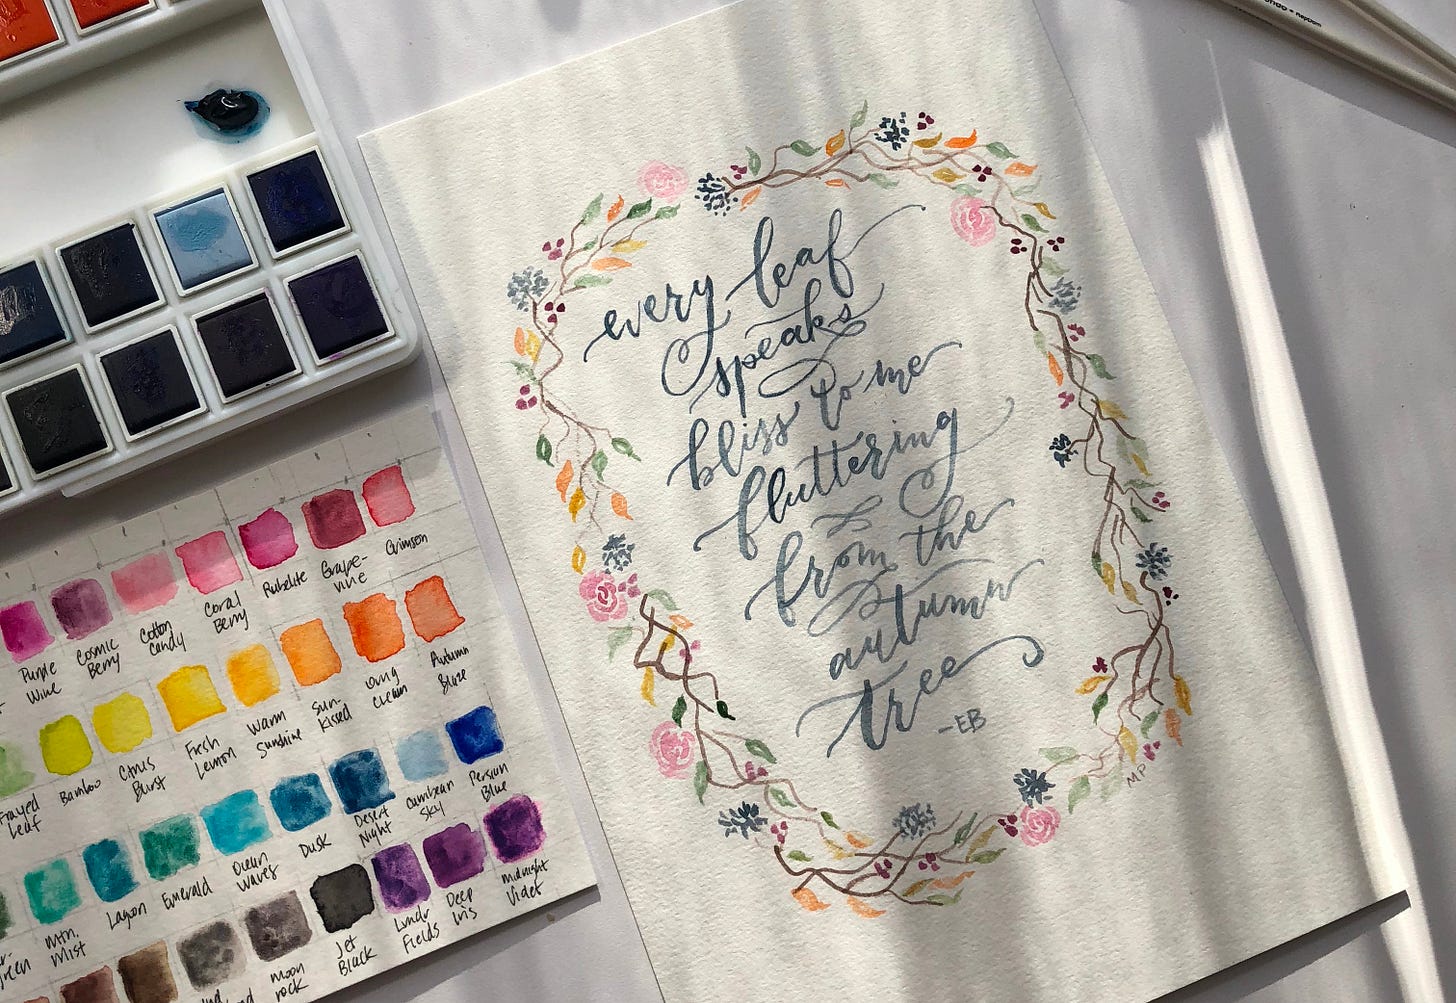 every leaf
speaks
bliss to me
fluttering
from the
autumn
tree
-EB
MP
Purple
Wine
Cosmic
Berry
Cotton
Candy
Coral
Berry
Rubelite
Grape-
vine
Crimson
Frayed
Leaf
Bamboo
Citrus
Burst
Fresh
Lemon
Warm
Sunshine
Sun-
kissed
Autumn
Blaze
Mtn.
Mist
Lagoon
Emerald
Ocean
Waves
Dusk
Desert
Night
Carribean
Sky
Persian
Blue
moon
rock
Jet
Black
Lvndr
Fields
Deep
Iris
Midnight
Violet